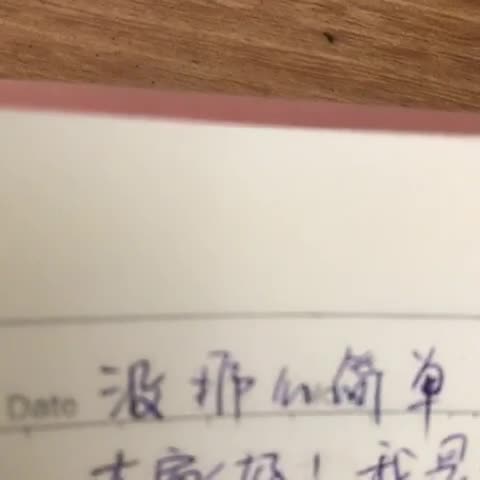 Date 没那么简单
大家好！我是